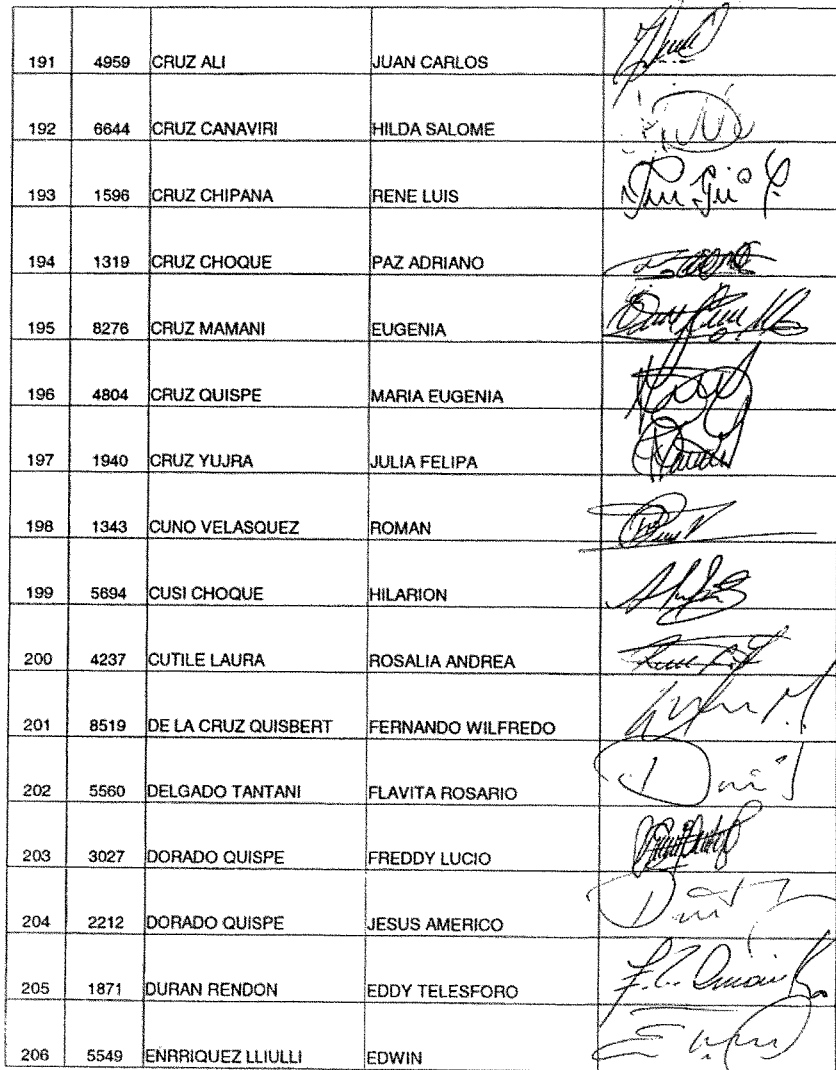 191 4959 CRUZ ALI JUAN CARLOS
192 6644 CRUZ CANAVIRI HILDA SALOME
193 1596 CRUZ CHIPANA RENE LUIS
194 1319 CRUZ CHOQUE PAZ ADRIANO
195 8276 CRUZ MAMANI EUGENIA
196 4804 CRUZ QUISPE MARIA EUGENIA
197 1940 CRUZ YUJRA JULIA FELIPA
198 1343 CUNO VELASQUEZ ROMAN
199 5694 CUSI CHOQUE HILARION
200 4237 CUTILE LAURA ROSALIA ANDREA
201 8519 DE LA CRUZ QUISBERT FERNANDO WILFREDO
202 5560 DELGADO TANTANI FLAVITA ROSARIO
203 3027 DORADO QUISPE FREDDY LUCIO
204 2212 DORADO QUISPE JESUS AMERICO
205 1871 DURAN RENDON EDDY TELESFORO
206 5549 ENRRIQUEZ LLIULLI EDWIN